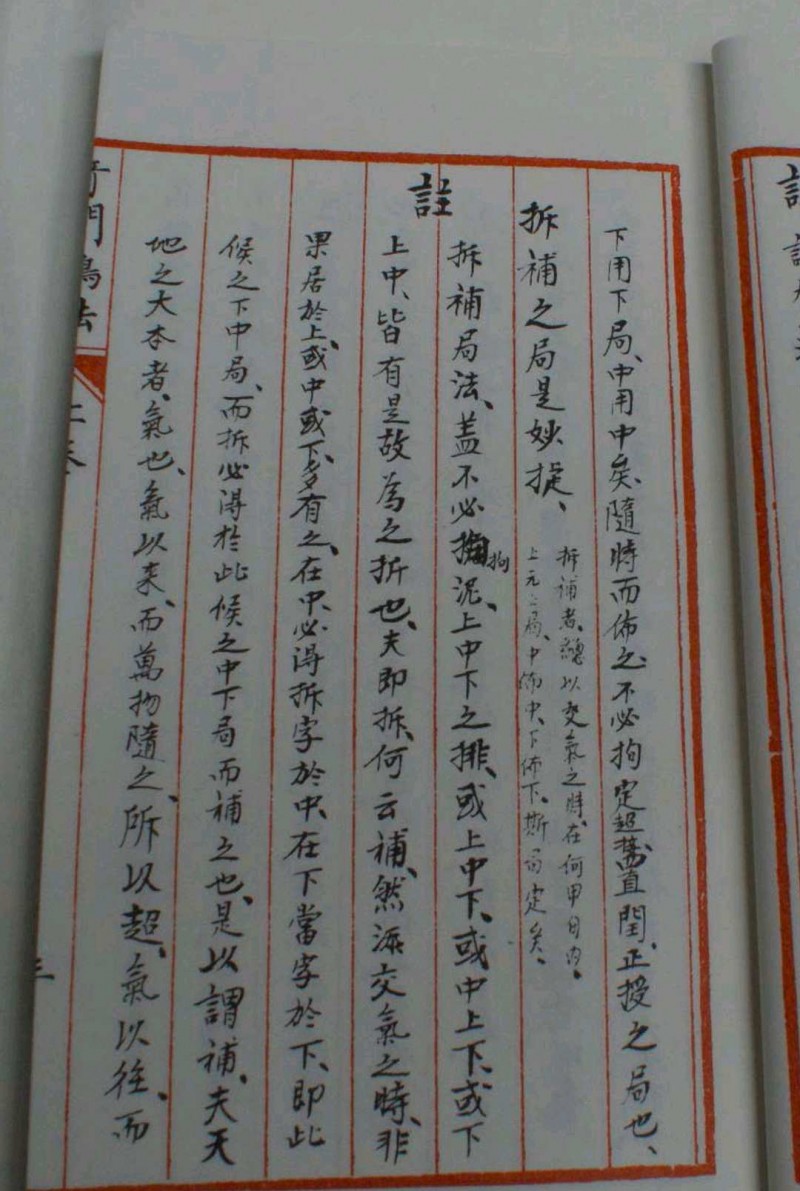 下用下局、中用中矣、隨時而佈之、不必拘定超接置閏、正授之局也、
拆補之局是妙捷、
拆補者、總以交氣之時、在何甲日內、
上元上局、中佈中、下佈下、斯局定矣、
註
拆補局法、蓋不必拘泥、上中下之排、或上中下、或中上下、或下
拘
上中、皆有是故為之折也、夫即拆、何云補、然派交氣之時、非
果居於上、或中或下、多有之、在中、必得拆字於中、在下當字於下、即此
候之下中局、而拆必得於此候之中下局而補之也、是以謂補、夫天
地之大本者、氣也、氣以來、而萬物隨之、所以超、氣以往、而
奇門鳴法
上卷
三